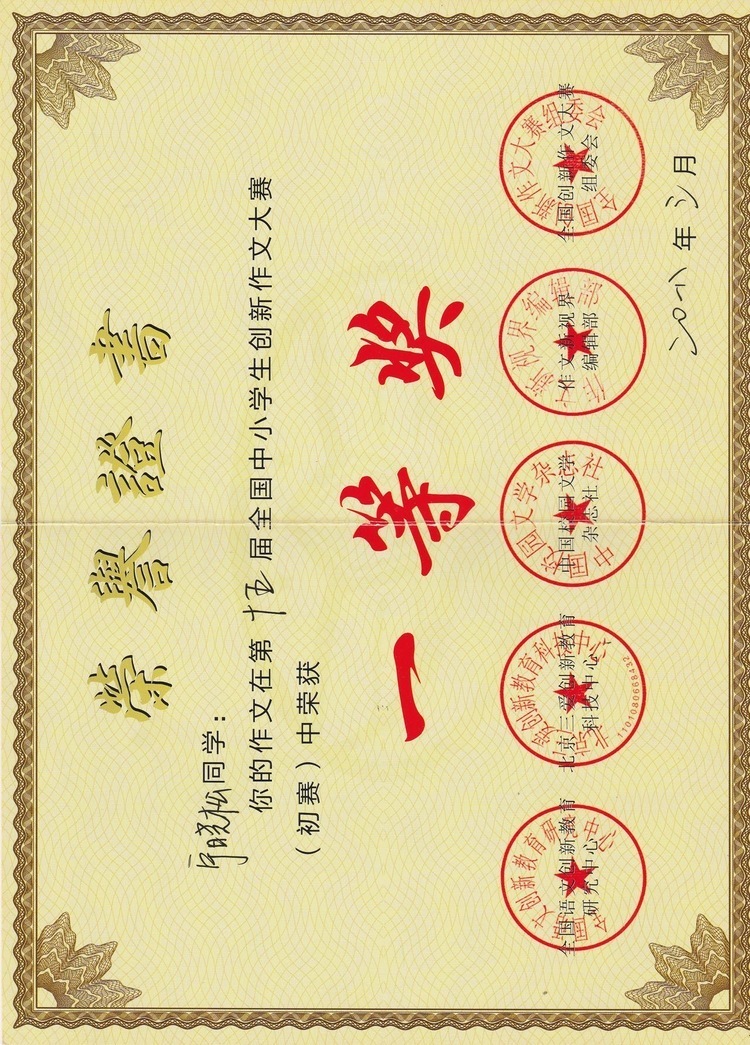 榮譽證書
晓松同学：
你的作文在第十五届全国中小学生创新作文大赛
（初赛）中荣获
一等奖
全国语文创新教育
研究中心
北京三爱创新教育
科技中心
1101080668432
中国校园文学
杂志社
作文新视界
编辑部
全国创新作文大赛
组委会
年 月